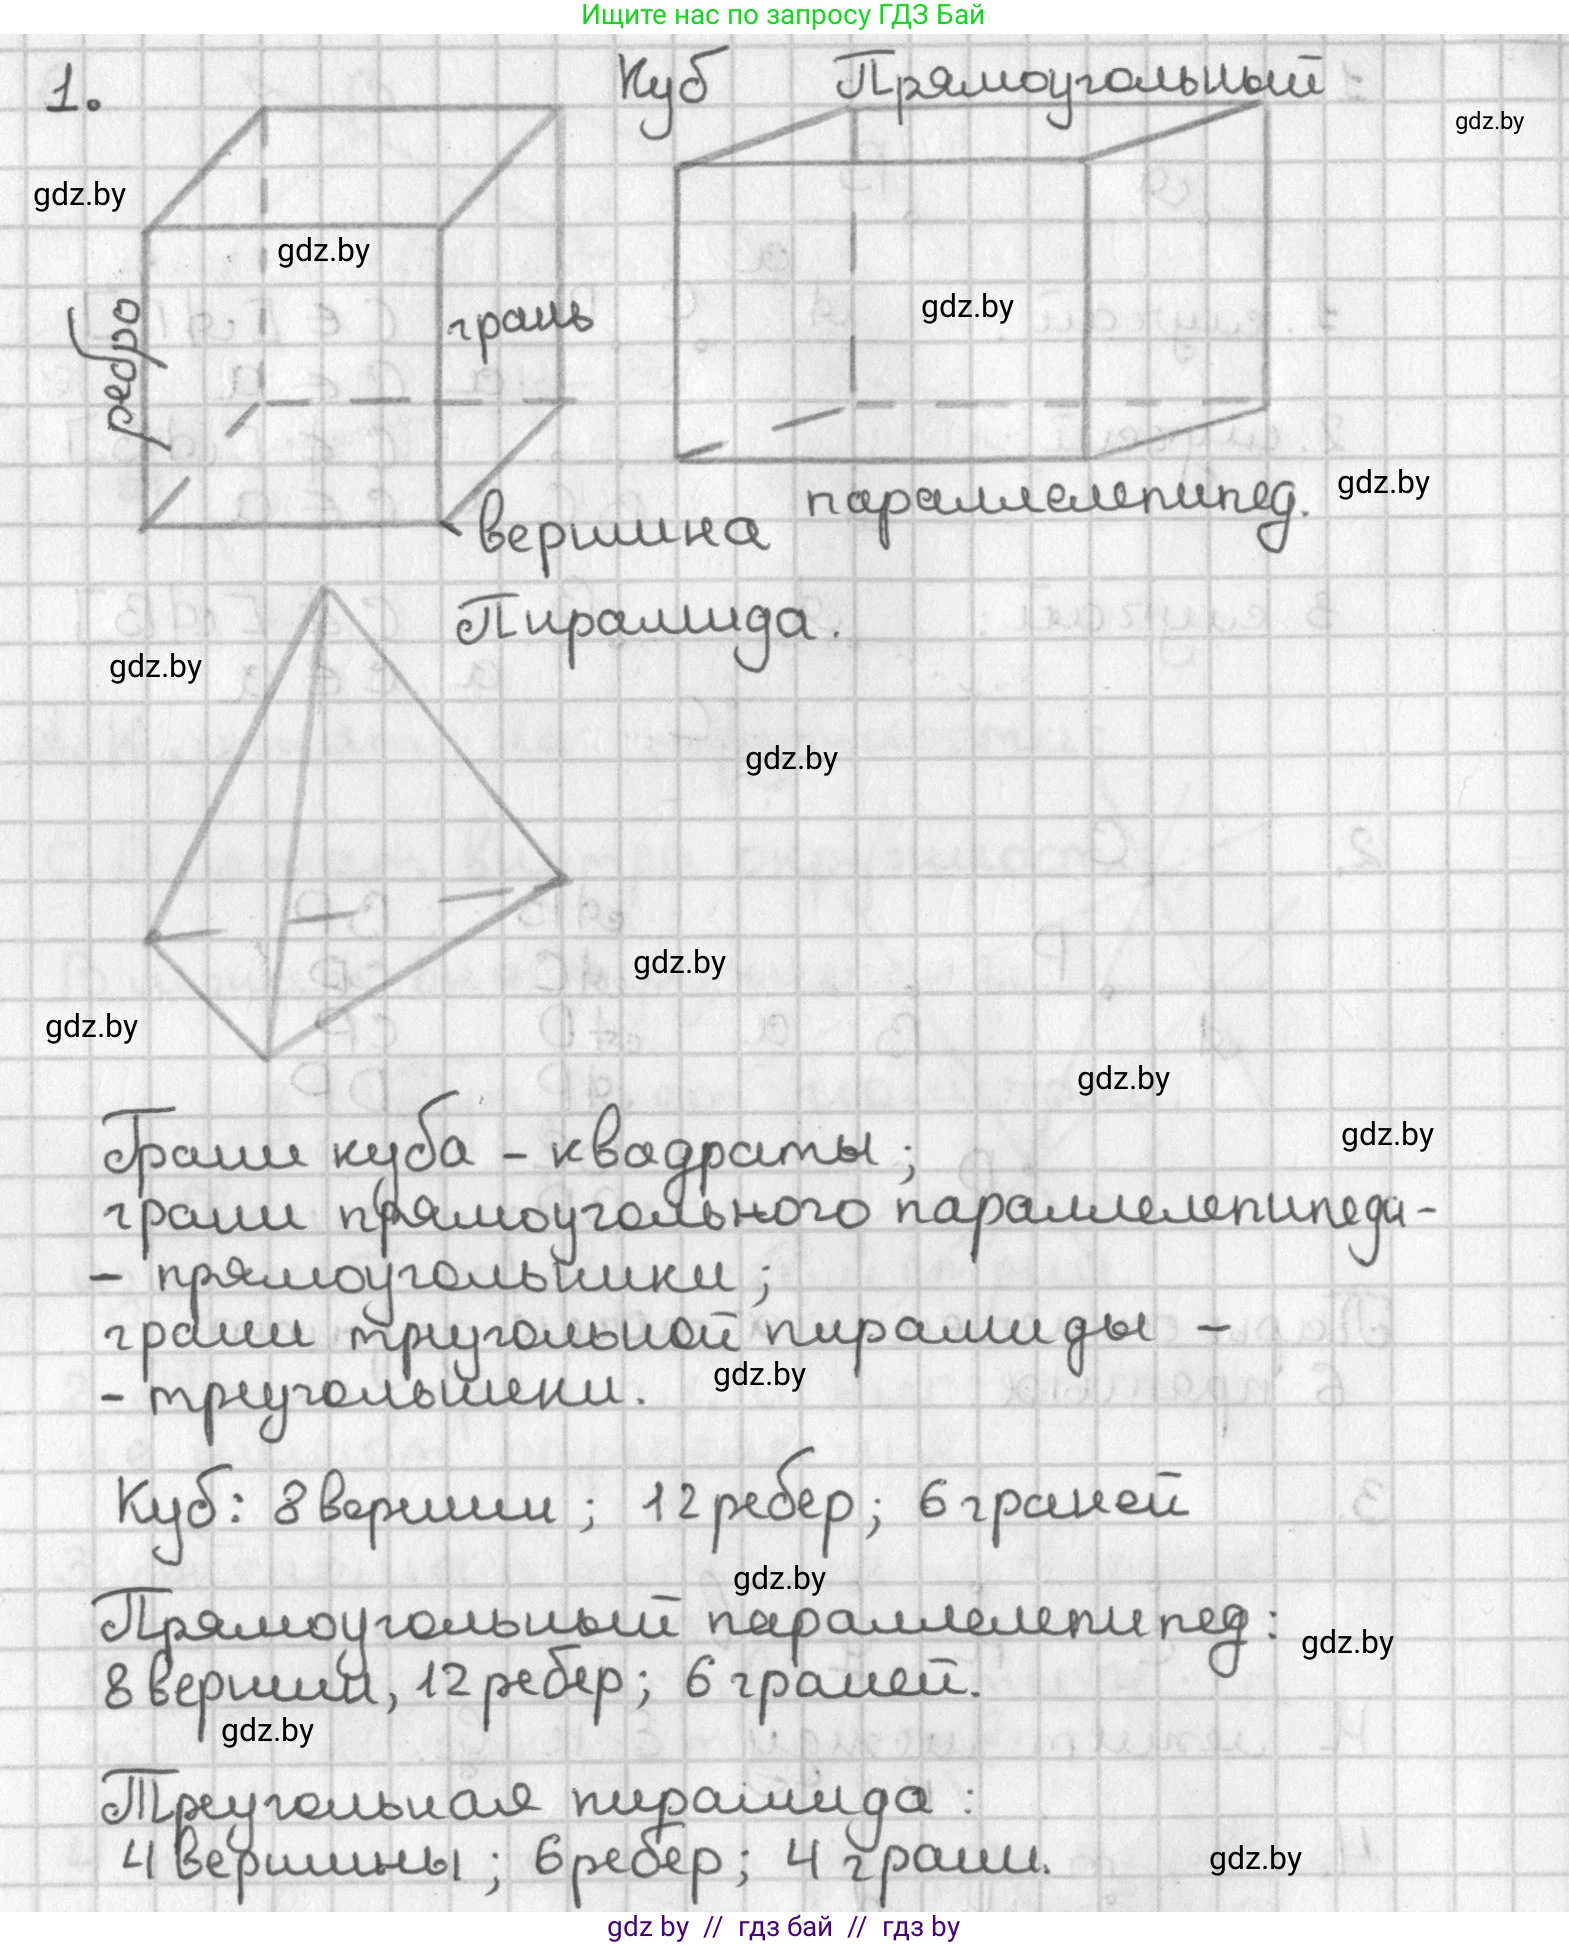 Ищите нас по запросу ГДЗ Бай
1.
Куб
Прямоугольный
gdz.by
gdz.by
gdz.by
ребро
грань
gdz.by
вершина
параллелепипед.
gdz.by
Пирамида.
gdz.by
gdz.by
gdz.by
gdz.by
gdz.by
Грани куба - квадраты;
gdz.by
грани прямоугольного параллелепипеда-
- прямоугольники;
грани треугольной пирамиды -
gdz.by
- треугольники.
Куб: 8 вершин; 12 ребер; 6 граней
gdz.by
Прямоугольный параллелепипед:
gdz.by
8 вершин, 12 ребер; 6 граней.
gdz.by
Треугольная пирамида:
4 вершины; 6 ребер; 4 грани.
gdz.by
gdz by // гдз бай // гдз by